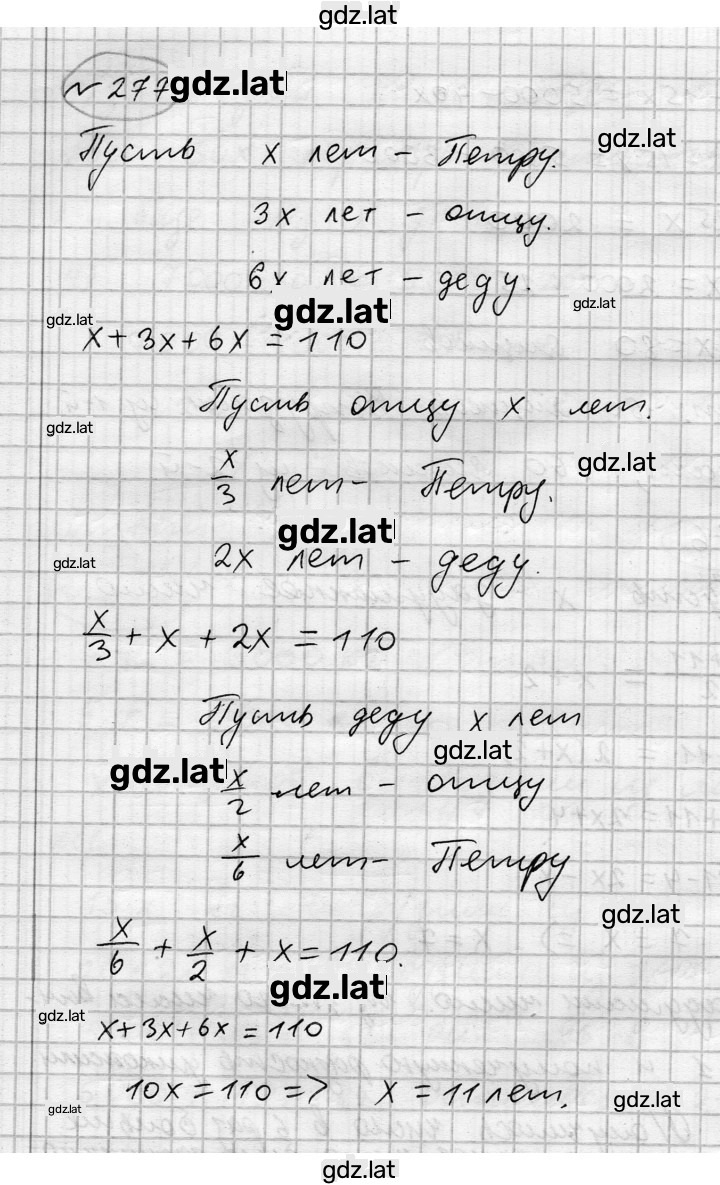 gdz.lat
№277 gdz.lat
Пусть x лет – Петру. gdz.lat
3x лет – отцу.
6x лет – деду.
gdz.lat gdz.lat gdz.lat
x + 3x + 6x = 110
Пусть отцу x лет.
gdz.lat
x/3 лет – Петру. gdz.lat
gdz.lat
2x лет – деду.
gdz.lat
x/3 + x + 2x = 110
Пусть деду x лет
gdz.lat
gdz.lat x/2 лет – отцу
x/6 лет – Петру
gdz.lat
x/6 + x/2 + x = 110.
gdz.lat
gdz.lat
x + 3x + 6x = 110
10x = 110 => x = 11 лет.
gdz.lat gdz.lat
gdz.lat